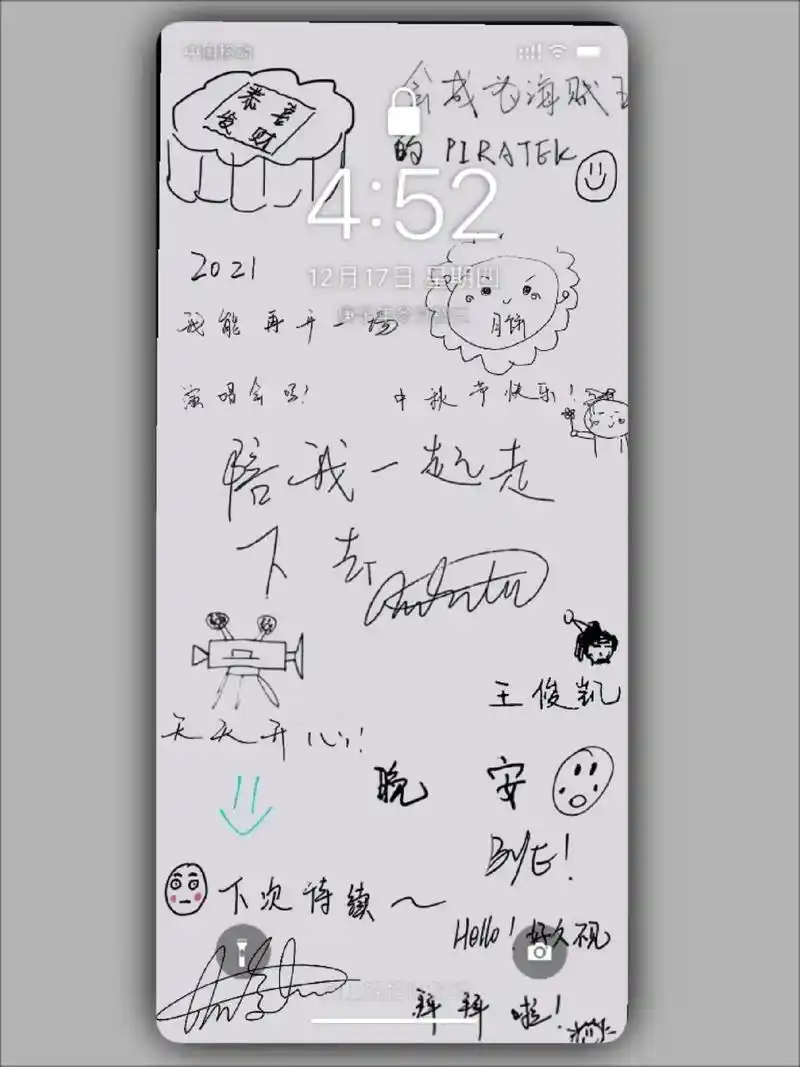 恭喜
发财
会成为海贼王
的 PIRATEK
4:52
2021
12月17日 星期四
月饼
我能再开一场
演唱会吗!
中秋节快乐!
陪我一起走
下去
王俊凯
天天开心!
晚安
BYE!
下次待续~
Hello! 好久不见
拜拜啦!